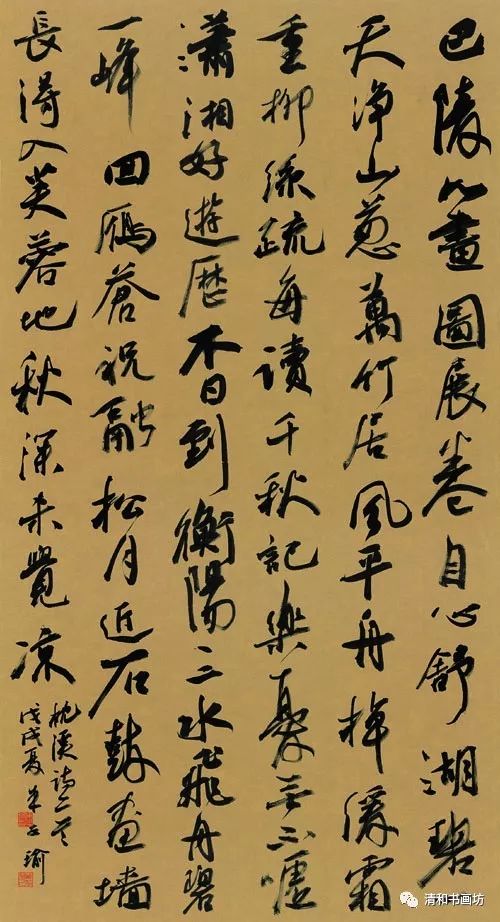 巴陵畫圖展卷自心舒湖碧
天净山葱萬竹居風平舟棹緩霜
重柳絲疏每讀千秋記樂憂無不噓
瀟湘好遊歷不日到衡陽二水飛舟碧
一峰回雁蒼祝融松月近石鼓畫墻
長漪入芙蓉地秋深未覺凉
枕溪詩二首
戊戌夏瑜
清和书画坊